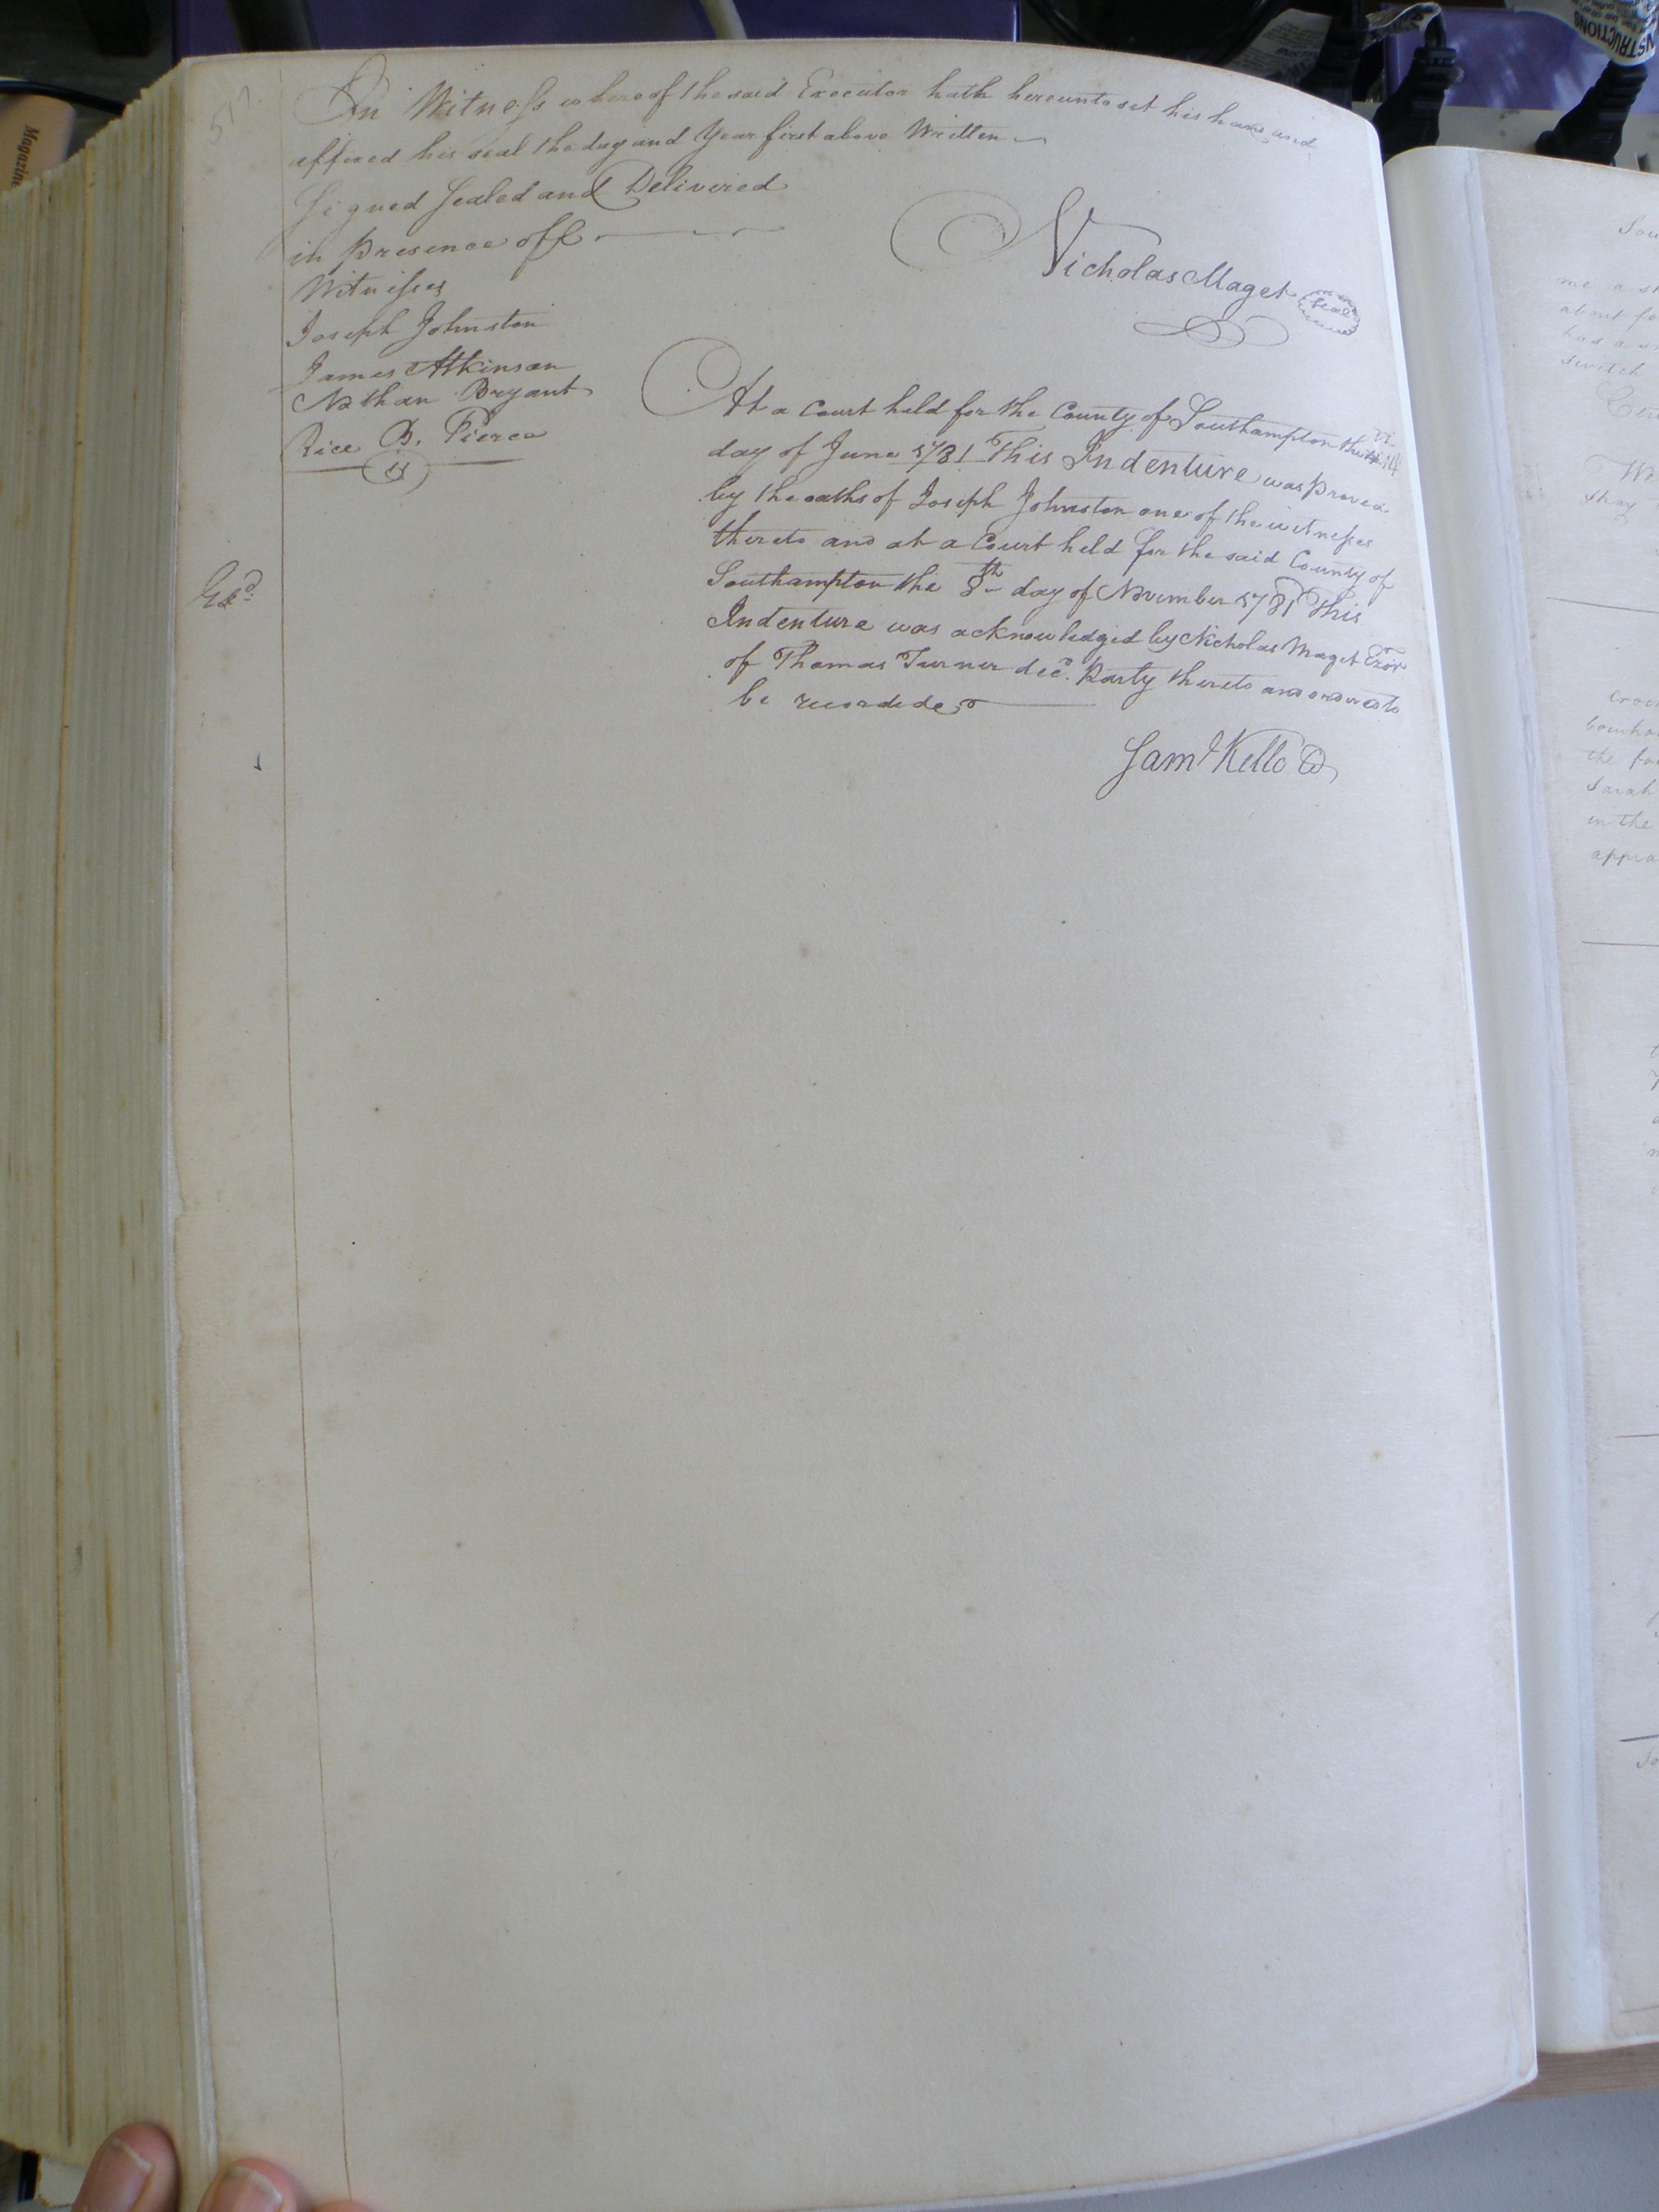 517
In Witness whereof the said Executor hath hereunto set his hand and
affixed his seal the day and Year first above Written
Signed Sealed and Delivered
in presence off
Witnesses
Joseph Johnston
James Atkinson
Nathan Bryant
Rice B. Pierce
Nicholas Maget
Seal
At a Court held for the County of Southampton the 14th
day of June 1781 This Indenture was proved
by the oaths of Joseph Johnston one of the witnesses
thereto and at a Court held for the said County of
Southampton the 8th day of November 1781 This
Indenture was acknowledged by Nicholas Maget Exor
of Thomas Turner decd. Party thereto and ordered to
be recorded
Saml Kello
Exd.
Sou
me a
about fo
has a s
switch
We
stray
the
Sarah
in the
appra
Magazine
INSTRUCTIONS